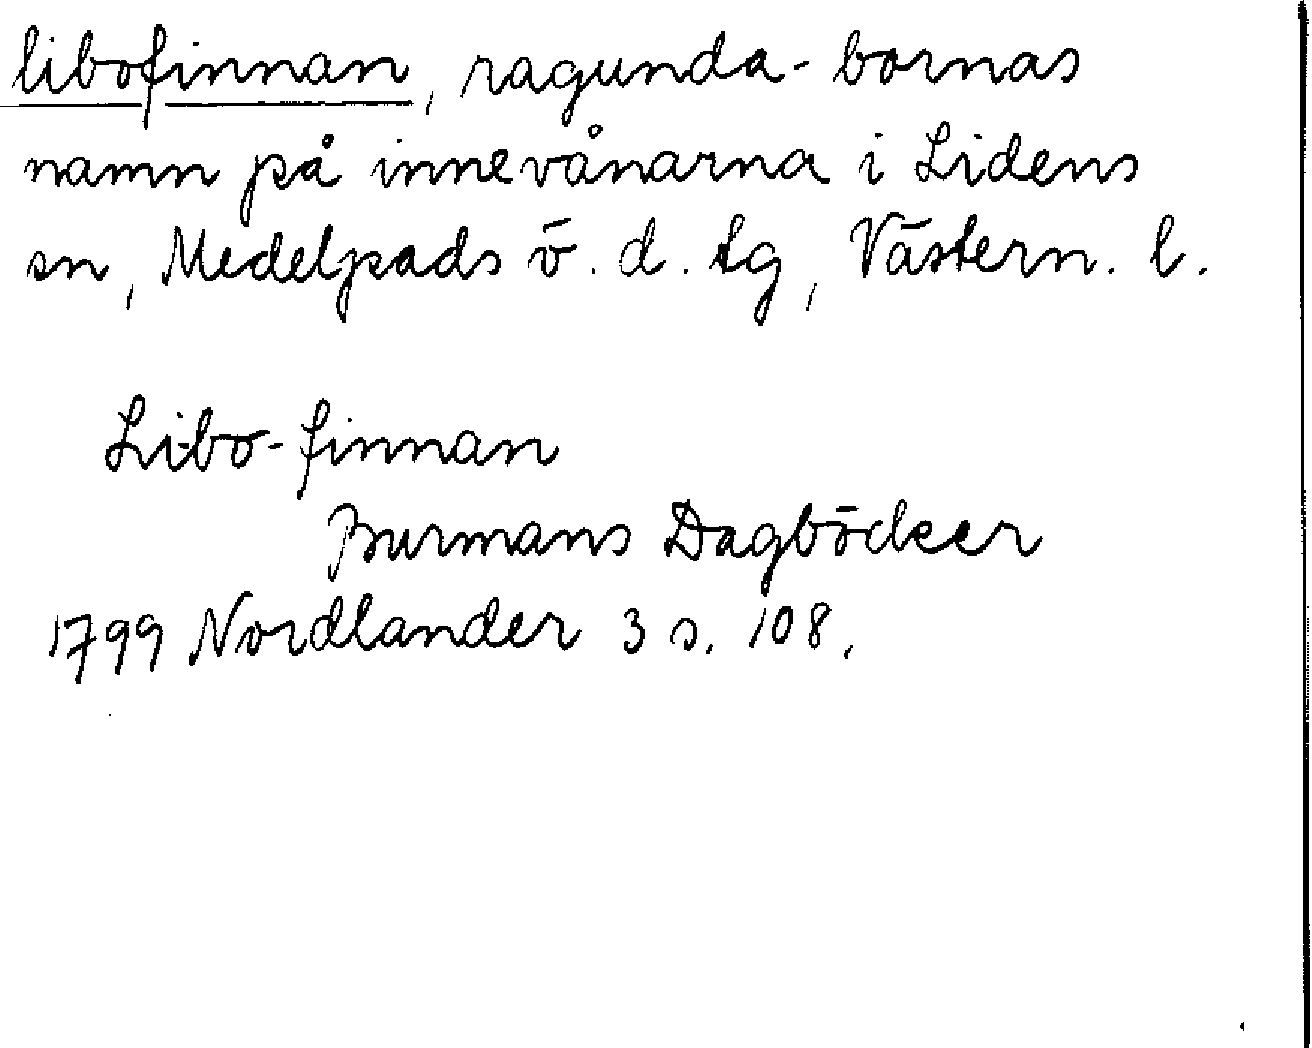 libofinnan, ragunda-bornas
namn på innevånarna i Lidens
sn, Medelpads v. d. tg, Västern. l.
Libo-finnan
Burmans Dagböcker
1799 Nordlander 3 s. 108.